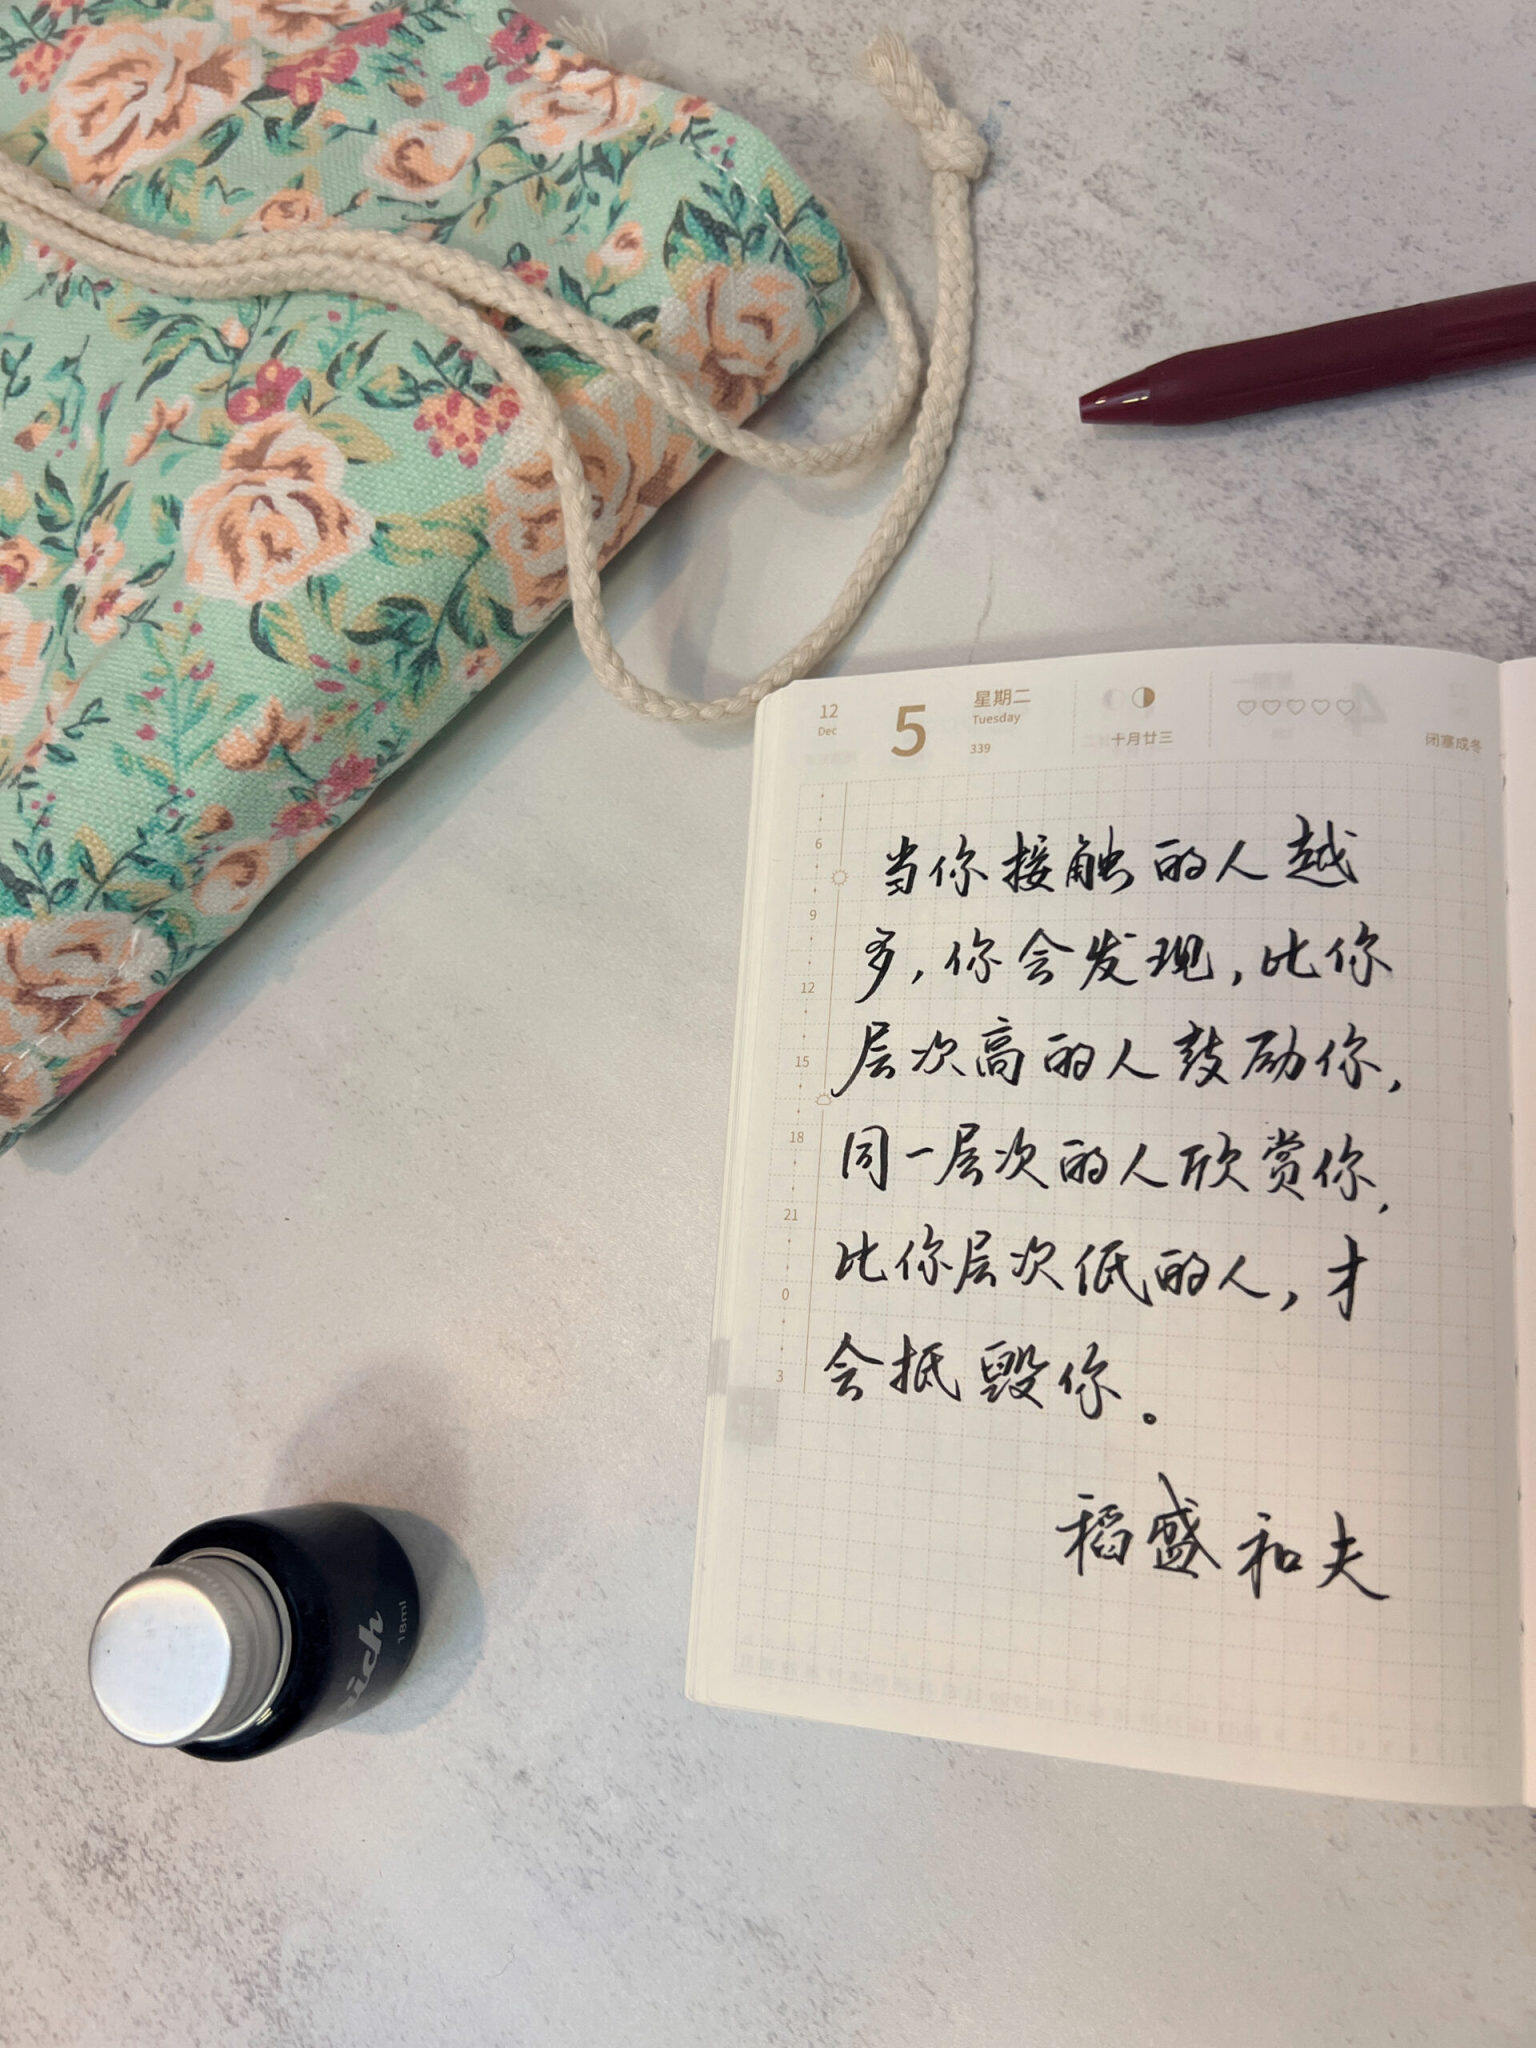 12
Dec
5
星期二
Tuesday
339
十月廿三
闭塞成冬
6
9
12
15
18
21
0
3
当你接触的人越
多，你会发现，比你
层次高的人鼓励你，
同一层次的人欣赏你，
比你层次低的人，才
会抵毁你。
稻盛和夫
18ml